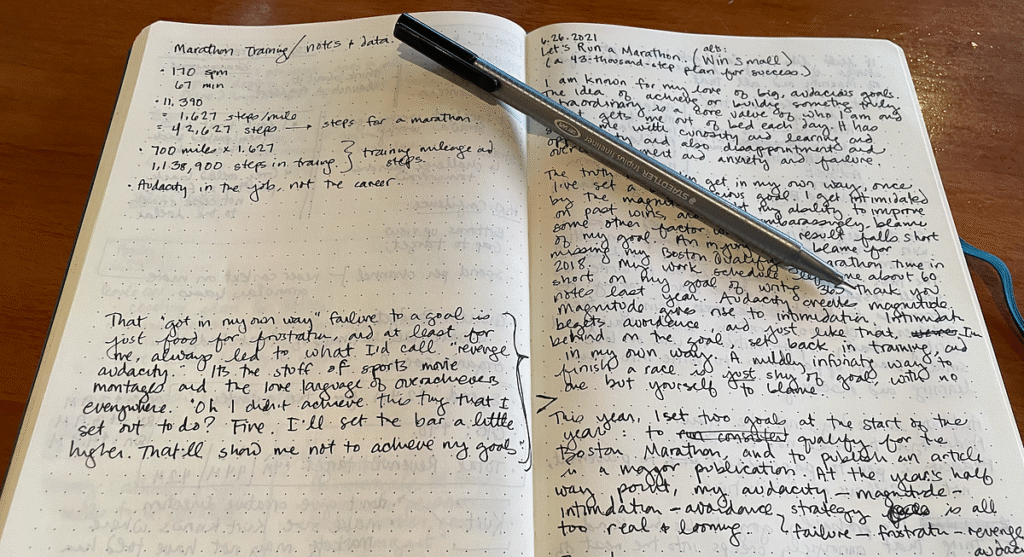 Marathon Training / notes + data.
• 170 spm
67 min
• 11,390
= 1,627 steps/mile
= 42,627 steps → steps for a marathon.
• 700 miles x 1.627
1,138,900 steps in traing } training mileage and steps.
• Audacity in the job, not the career.
That "got in my own way" failure to a goal is
just food for frustration, and at least for
me, always led to what I'd call "revenge
audacity." Its the stuff of sports movie
montages and the love language of overachievers
everywhere. "Oh I didn't achieve this thing that I
set out to do? Fine. I'll set the bar a little
higher. That'll show me not to achieve my goals"
6.26.2021
Let's Run a Marathon. (alt: Win Small)
(a 43-thousand-step plan for success.)
I am known for my love of big, audacious goals.
The idea of achieving or building something truly
extraordinary is a core value of who I am and
gets me out of bed each day. It has
me with curiosity and learning and
and also disappointment and
and anxiety and failure.
The truth get in my own way, once
I've set a goal. I get intimidated
by the my ability to improve
on past wins, embarrassingly blame
some other factor result falls short
of my goal. An injury blame for
missing my Boston Marathon time in
2018. My work schedule me about 60
short on my goal of writing 365 thank you
notes last year. Audacity creates magnitude.
magnitude gives rise to intimidation. Intimidati
begets avoidance, and just like that, I'm
behind on the goal, set back in training, and
in my own way. A mildly infuriating way to
finish a race is just shy of goal, with no
one but yourself to blame.
> This year, I set two goals at the start of the
year: to run consider qualify for the
Boston Marathon, and to publish an article
in a major publication. At the year's half
way point, my audacity – magnitude –
intimidation – avoidance strategy is all
too real & looming. } failure – frustrati – revenge
audac
STAEDTLER triplus fineliner